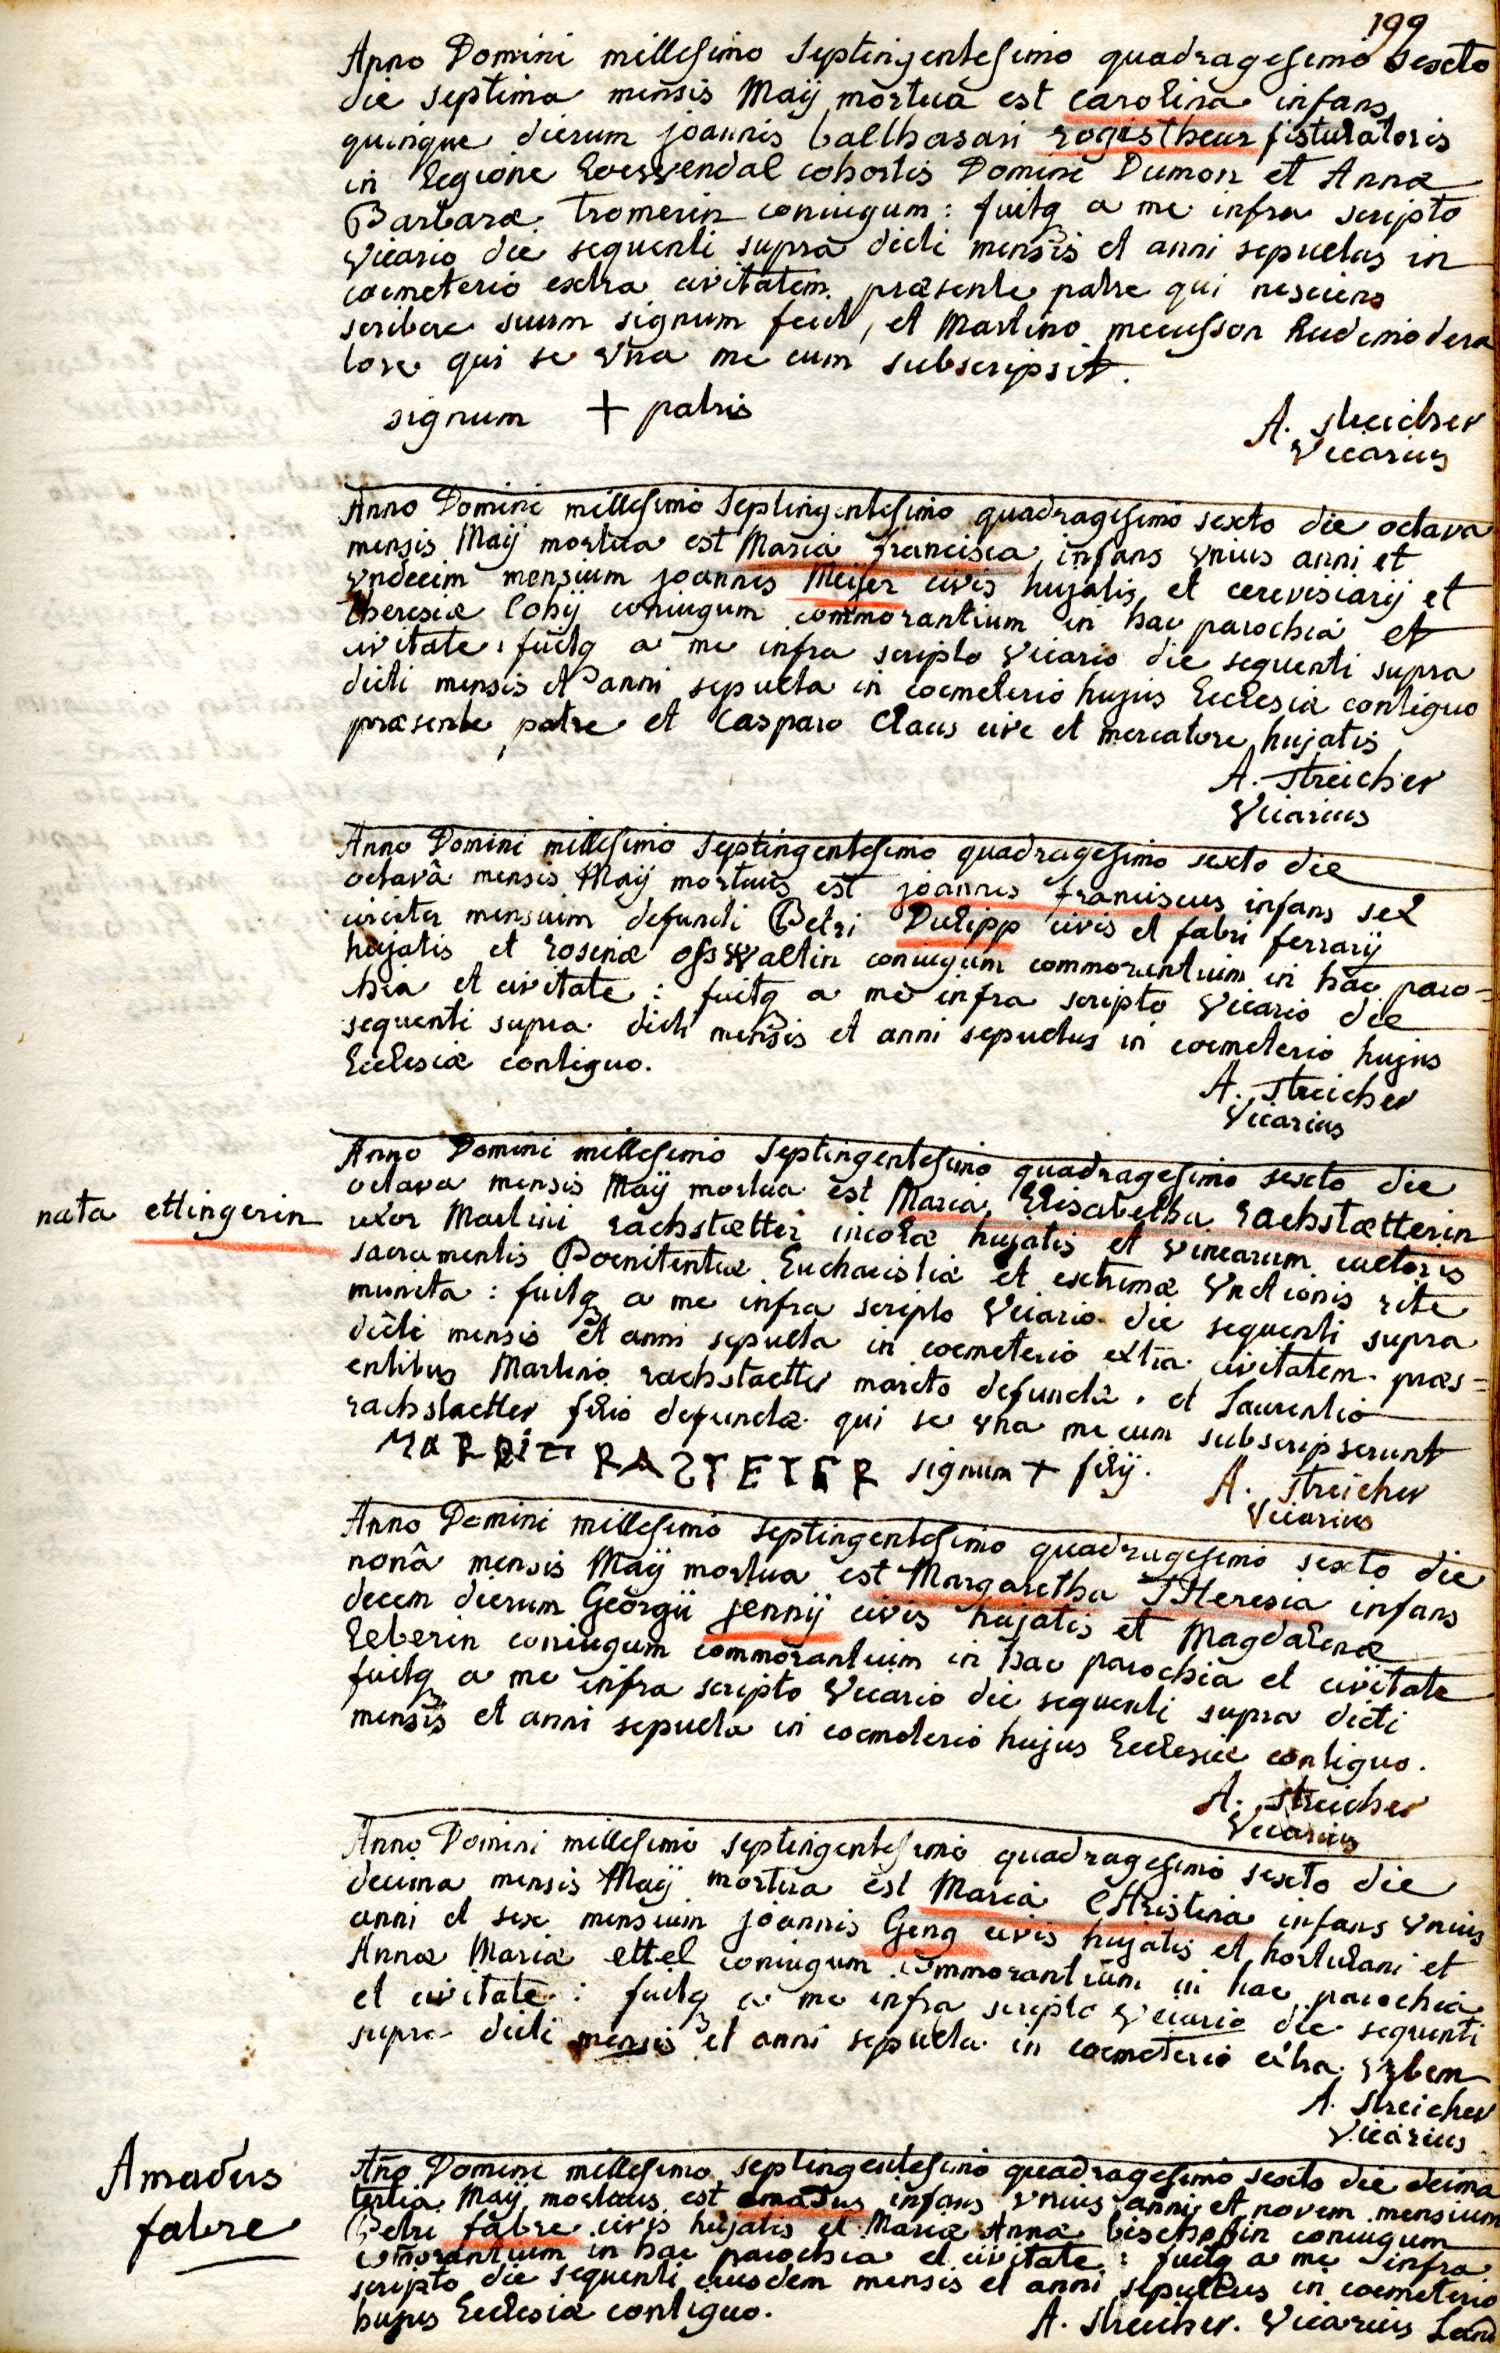 199
Anno Domini millesimo septingentesimo quadragesimo sexto
die septima mensis Maÿ mortua est Carolina infans
quinque dierum joannis balthasari rogistheur fistulatoris
in legione Loewendal cohortis Domini Dumon et Annæ
Barbaræ Tromerin coniugum : fuitq a me infra scripto
Vicario die sequenti supra dicti mensis et anni sepultus in
coemeterio extra civitatem præsente patre qui nesciens
scribere suum signum fecit, et Martino meusson ludimodera
tore qui se vna me cum subscripsit.
signum + patris
A. Streicher
Vicarius
Anno Domini millesimo septingentesimo quadragesimo sexto die octava
mensis Maÿ mortua est Maria francisca infans vnius anni et
vndecim mensium joannis Meijer civis hujatis, et cerevisiarij et
theresiæ Cobij coniugum commorantium in hac parochia et
civitate : fuitq a me infra scripto Vicario die sequenti supra
dicti mensis et anni sepulta in coemeterio hujus Ecclesiæ contiguo
præsente patre et Casparo Claus cive et mercatore hujatis
A. Streicher
Vicarius
Anno Domini millesimo septingentesimo quadragesimo sexto die
octavâ mensis Maÿ mortuus est joannes franciscus infans sex
circiter mensium defuncti Petri Dulipp civis et fabri ferrarij
hujatis et rosinæ osswaltin coniugum commorantium in hac paro=
chia et civitate : fuitq a me infra scripto Vicario die
sequenti supra dicti mensis et anni sepultus in coemeterio hujus
Ecclesiæ contiguo.
A. Streicher
Vicarius
Anno Domini millesimo septingentesimo quadragesimo sexto die
octava mensis Maÿ mortua est Maria Elisabetha rachstætterin
nata ettingerin
uxor Martini rachstætter incolæ hujatis et vinearum cultoris
sacramentis Poenitentiæ Eucharistiæ et extremæ Vnctionis rite
munita : fuitq a me infra scripto Vicario die sequenti supra
dicti mensis et anni sepulta in coemeterio extra civitatem præs=
entibus Martino rachstaetter marito defunctæ . et Laurentio
rachstaetter filio defunctæ qui se vna me cum subscripserunt
MARDIZI RASTETER signum + filij.
A. Streicher
Vicarius
Anno Domini millesimo septingentesimo quadragesimo sexto die
nonâ mensis Maÿ mortua est Margaretha THeresia infans
decem dierum Georgii jennij civis hujatis et Magdalenæ
Leberin coniugum commorantium in hac parochia et civitate
fuitq a me infra scripto Vicario die sequenti supra dicti
mensis et anni sepulta in coemeterio hujus Ecclesiæ contiguo.
A. Streicher
Vicarius
Anno Domini millesimo septingentesimo quadragesimo sexto die
decima mensis Maÿ mortua est Maria CHristina infans vnius
anni et sex mensium joannis Geng civis hujatis et hortulani et
Annæ Mariæ ettel coniugum commorantium in hac parochia
et civitate : fuitq a me infra scripto Vicario die sequenti
supra dicti mensis et anni sepulta in coemeterio extra Vrbem
A. Streicher
Vicarius
Amadeus
fabre
Año Domini millesimo septingentesimo quadragesimo sexto die decima
tertia Maÿ mortuus est amadus infans vnius anni et novem mensium
Petri fabre civis hujatis et Mariæ Annæ bischoffin coniugum
comorantium in hac parochia et civitate : fuitq a me infra
scripto die sequenti eiusdem mensis et anni sepultus in coemeterio
hujus Ecclesiæ contiguo.
A. Streicher. Vicarius Land